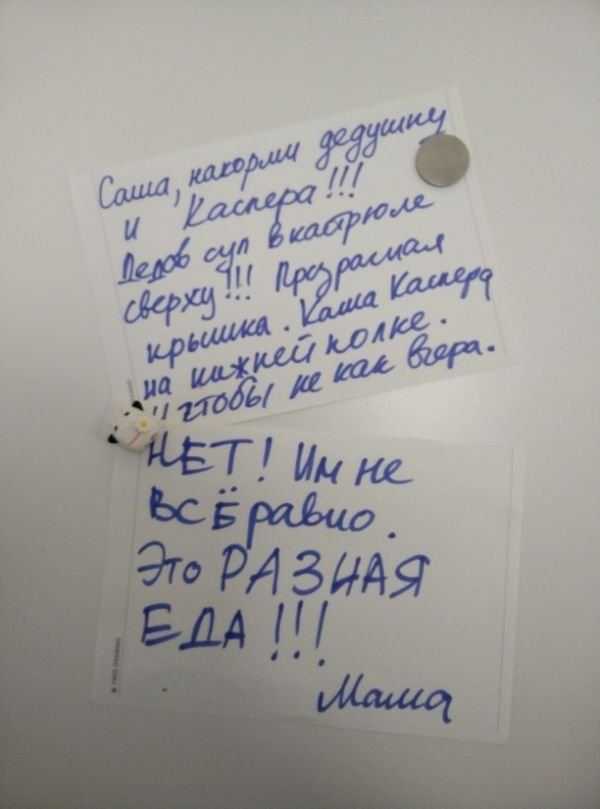 Саша, накорми дедушку
и Каспера!!!
Дедов суп в кастрюле
сверху!!! Прозрачная
крышка. Каша Каспера
на нижней полке.
И чтобы не как вчера.
НЕТ! Им не
ВСЁ равно.
Это РАЗНАЯ
ЕДА!!!
Мама
FREE DRAWING